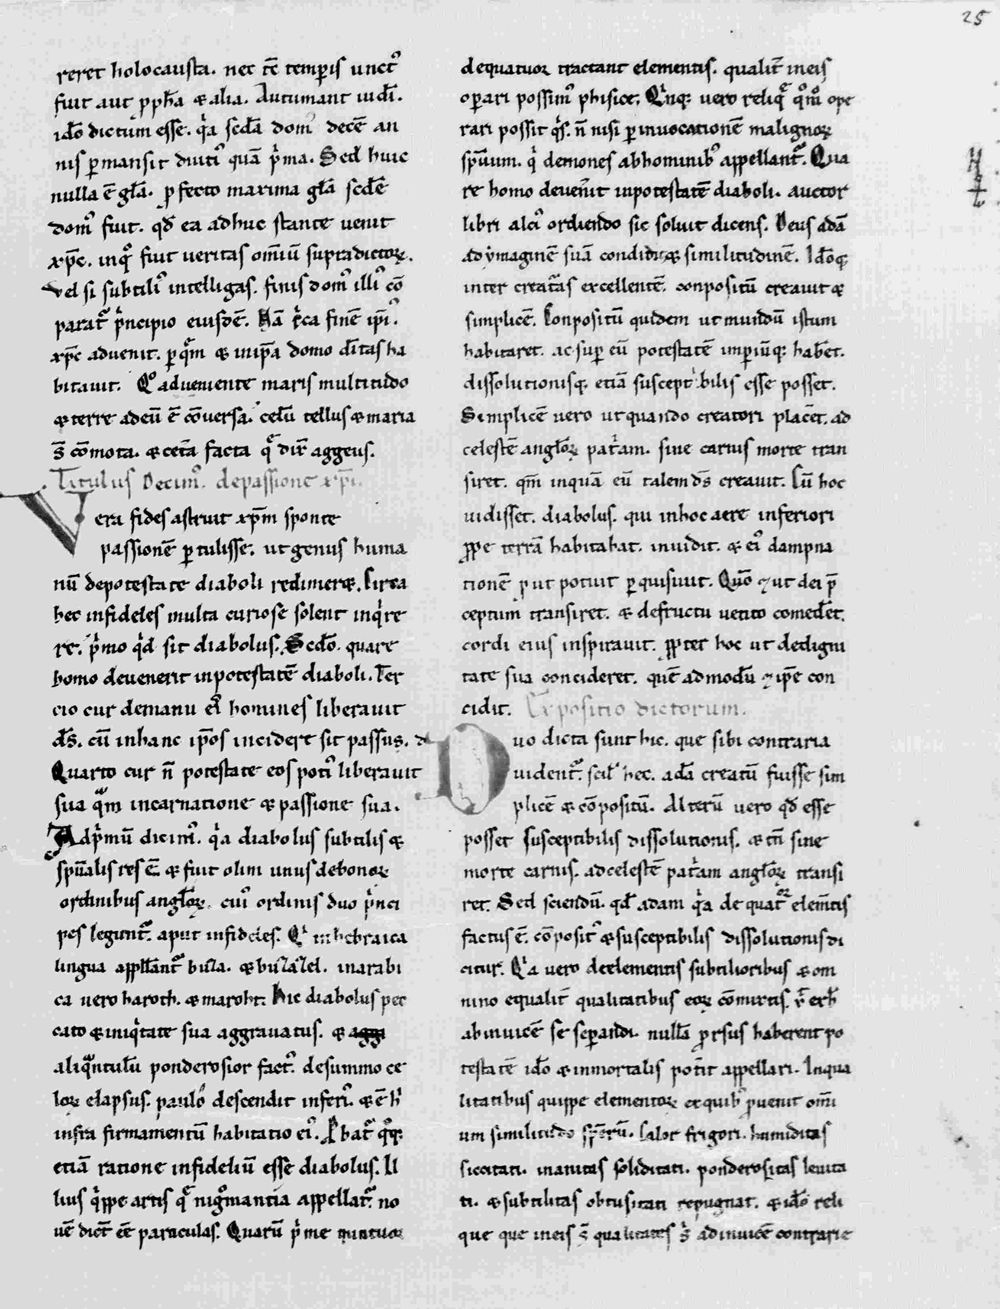 25
reret holocausta. nec t̄e tempis unctꝰ
fuit aut ꝓph̄a & alia. Autumant iudi.
id̄o dictum esse. qͥa sc̄da domꝰ decē an
nis ꝑmansit diutiꝰ quā pͥma. Sed huic
nulla ē gl̄a. ꝓfecto maxima gl̄a sc̄dē
domꝰ fuit. qd̄ ea adhuc stante uenit
xp̄c. inqͦ fuit ueritas om̄iū supradictoꝝ.
Vel si subtiliꝰ intelligas. finis domꝰ illiꝰ cō
parat᷑ pͥncipio eiusdē. Nā cͥca finē ip̄iꝰ.
xp̄c aduenit. ꝑ qͣm & in ip̄a domo d̄itas ha
bitauit. Qͦ adueniente maris multitudo
& terre ad eū ē cōuersa. celū tellus & maria
s̄t cōmota. & cet̄a facta qͣ dix̄ aggeus.
Titulus Decimꝰ. de passione xp̄i.
Vera fides astruit xp̄m sponte
passionē ꝑtulisse. ut genus huma
nū de potestate diaboli redimeret᷑. Circa
hec infideles multa curiose solent inqͥre
re. pͥmo qͥd sit diabolus. Sc̄do. quare
homo deuenerit in potestatē diaboli. Ter
cio cur de manu eiꝰ homines liberauit
d̄s. cū in hanc ip̄os incidere sit passus.
Quarto cur n̄ potestate eos potiꝰ liberauit
sua qͣm incarnatione & passione sua.
Ad pͥmū dicimꝰ. qͥa diabolus subtilis &
sp̄ualis res ē. & fuit olim unus de bonoꝝ
ordinibus angl̄oꝝ. cuiꝰ ordinis duo pͥnci
pes legunt᷑. aput infideles. Qͥ in hebraica
lingua appll̄ant᷑ in arabi
ca uero haroth. & maroht. Hic diabolus pec
cato & iniqͥtate sua aggrauatus. &
aliqͣntulū ponderosior factꝰ. de summo ce
loꝝ elapsus. paulo descendit inferiꝰ. & ē hͥ
infra firmamentū habitatio eiꝰ. Ꝓbat᷑ qͦꝗ
etiā ratione infideliū esse diabolus. Il
lius qͥppe artis qͣ nigͦmantia appellat᷑. no
uē dict̄ ēe particulas. Quarū pͥme quatuor
de quatuor tractant elementis. qualit̄ in eis
operari possimꝰ phisice. Qͥnꝗ uero reliqͣ qͦmͦ ope
rari possit qͥs. n̄ nisi ꝑ inuocationē malignoꝝ
sp̄uum. qͥ demones ab hominibꝰ appellant᷑. Qua
re homo deuen̄it in potestatē diaboli. auctor
libri alciꝰ ordiendo sic soluit dicens. Deus adā
ad ymaginē suā condidit & similitudinē. Id̄oꝗ
inter creat᷑as excellentē. conpositū creauit &
simplicē. Conpositū quidem ut mundū istum
habitaret. ac suꝑ eū potestatē imperiūꝗ hab̄et.
dissolutionisꝗ etiā susceptibilis esse posset.
Simplicē uero ut quando creatori placēt. ad
celestē angl̄oꝝ pat̄am. sine carnis morte tran
siret. qm̄ inquā eū talem d̄s creauit. Cū hoc
uidisset. diabolus. qui in hoc aere inferiori
ꝓpe terrā habitabat. inuidit. & eiꝰ dampna
tionē ꝓut potuit ꝑquisiuit. Quō & ut dei p̄
ceptum transiret. & de fructu uetito comed̄et.
cordi eius inspirauit. ꝓpter hoc ut de digni
tate sua concideret. quē admodū & ip̄e con
cidit. Expositio dictorum.
Duo dicta sunt hic. que sibi contraria
uident᷑. scil̄ hec. adā creatū fuisse sim
plicē & cōpositū. Alterū uero qd̄ esse
posset susceptibilis dissolutionis. & tn̄ sine
morte carnis. ad celestē pat̄am angl̄oꝝ transi
ret. Sed sciendū. qd̄ adam qͥa de quat᷑oꝝ elem̄tis
factus ē. cōpositꝰ & susceptibilis dissolutionis di
citur. Qͥa uero de elementis subtilioribus & om
nino equalit̄ qualitatibus eoꝝ cōmixtis.
ab inuicē se seꝑandi. nullā ꝓrsus haberent po
testatē id̄o & inmortalis pot̄it appellari. In qua
litatibus quippe elementoꝝ ex quibꝰ ꝓuenit om̄i
um similitudo sꝑerū. Calor frigori. humiditas
siccitati. inanitas soliditati. ponderositas leuita
ti. & subtilitas obtusitati repugnat. & id̄o reli
que que in eis s̄t qualitates s̄t ad inuicē contrarie